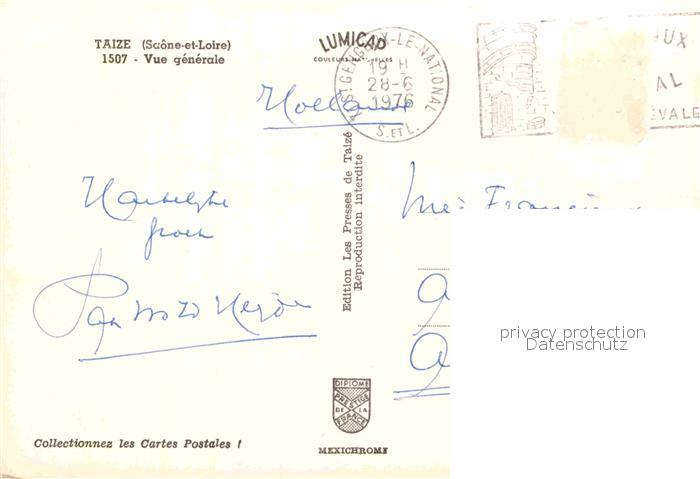 TAIZE (Saône-et-Loire)
1507 - Vue générale
LUMICAP
COULEURS NATURELLES
71 ST GENGOUX-LE-NATIONAL
19 H
28-6
1976
S. ET L.
UX
AL
EVALE
Holland
Hartelijke
groet
Edition Les Presses de Taizé
Reproduction interdite
privacy protection
Datenschutz
DIPLOME
PRESTIGE
DE LA
FRANCE
MEXICHROME
Collectionnez les Cartes Postales !